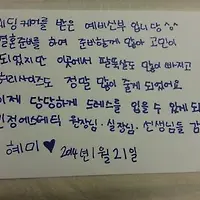 웨딩 케어를 받은 예비신부 입니당 ^o^
결혼준비를 하며 준비할게 많아 고민이
되었지만 이곳에서 팔뚝살도 많이 빠지고
사이즈도 정말 많이 줄게 되었어요
이제 당당하게 드레스를 입을 수 있게 되
원장님·실장님·선생님들 감
혜미 ♥ 2014년 1월 21일